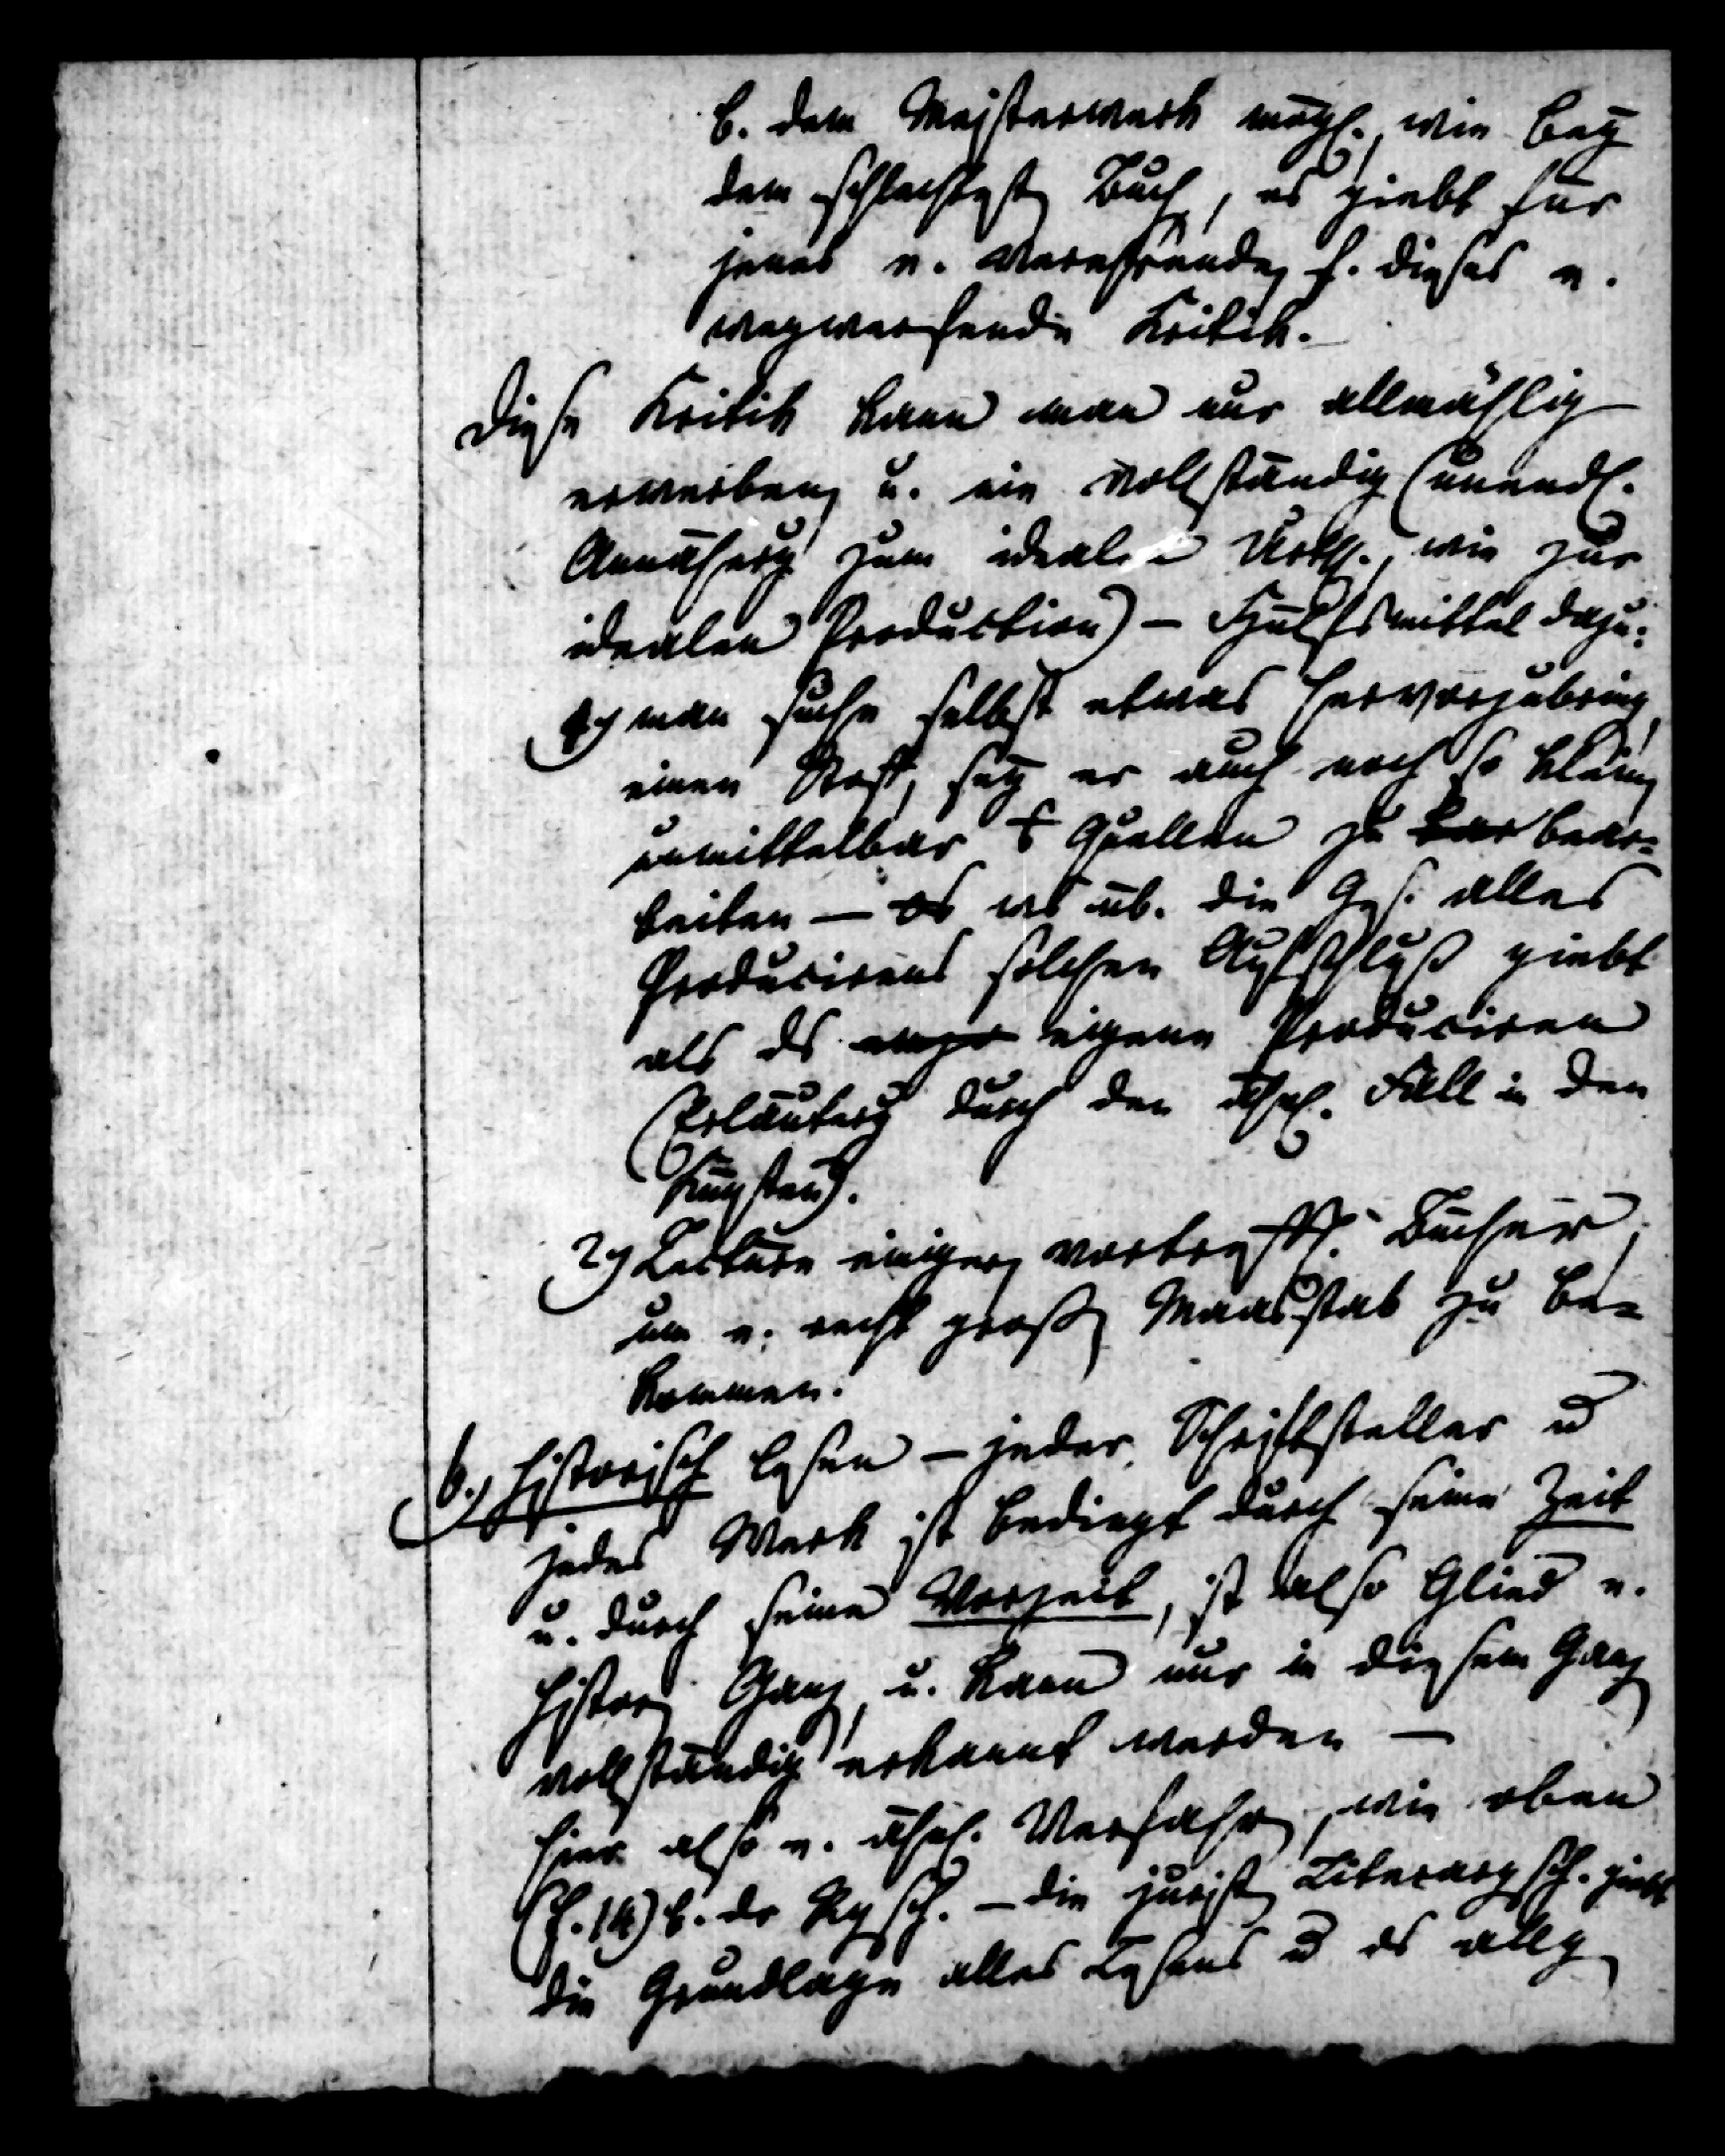 b. dem Meisterwerk mögl., wie bey
dem schlechtest Buch, es giebt für
jenes e. verehrende, f. dieses e.
wegwerfende Kritik.
Diese Kritik kann man nur allmählig
erwerben, u. nie vollständig (unendl.
Annäherg zum idealen Urth., wie zur
idealen Production) – Hülfsmittel dazu:
1) man suche selbst etwas hervorzubring,
einen Stoff, sey er auch noch so klein,
unmittelbar Quellen zu bear=
beiten – üb. die Gs. alles
Producirens solchen Aufschluß giebt
als ds eigene Produciren
(Erläuterg durch den ähnl. Fall in den
Künsten).
2) Lectüre einiger vortreffl. Bücher,
um e. recht groß Maasstab zu be=
kommen.
b.) historisch lesen – jeder Schriftsteller u
jedes Werk ist bedingt durch seine Zeit
u. durch seine Vorzeit, ist also Glied e.
histor Ganz, u. kann nur in diesem Ganz
vollständig erkannt werden –
hier also e. ähnl. Verfahr, wie oben
(f. 14) b. dr Rgsch. – die jurist Literargsch. giebt
die Grundlage alles Lesens u ds allg